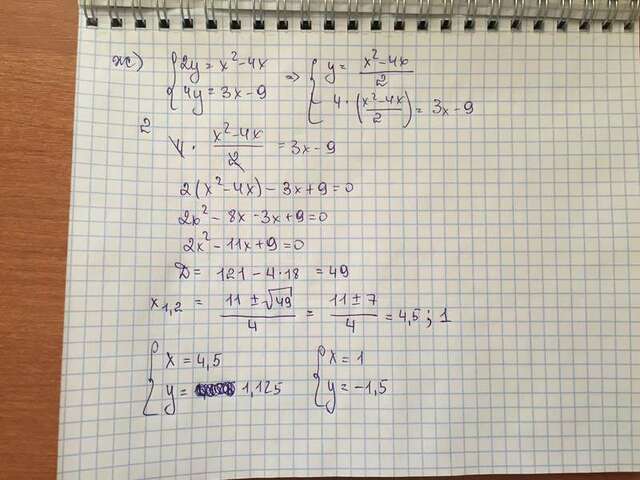 ж) { 2y = x² - 4x ⇒ { y = (x² - 4x)/2
{ 4y = 3x - 9 { 4 · ((x² - 4x)/2) = 3x - 9
2
4 · (x² - 4x)/2 = 3x - 9
2(x² - 4x) - 3x + 9 = 0
2x² - 8x - 3x + 9 = 0
2x² - 11x + 9 = 0
D = 121 - 4·18 = 49
x₁,₂ = (11 ± √49)/4 = (11 ± 7)/4 = 4,5 ; 1
{ x = 4,5 { x = 1
{ y = 1,125 { y = -1,5